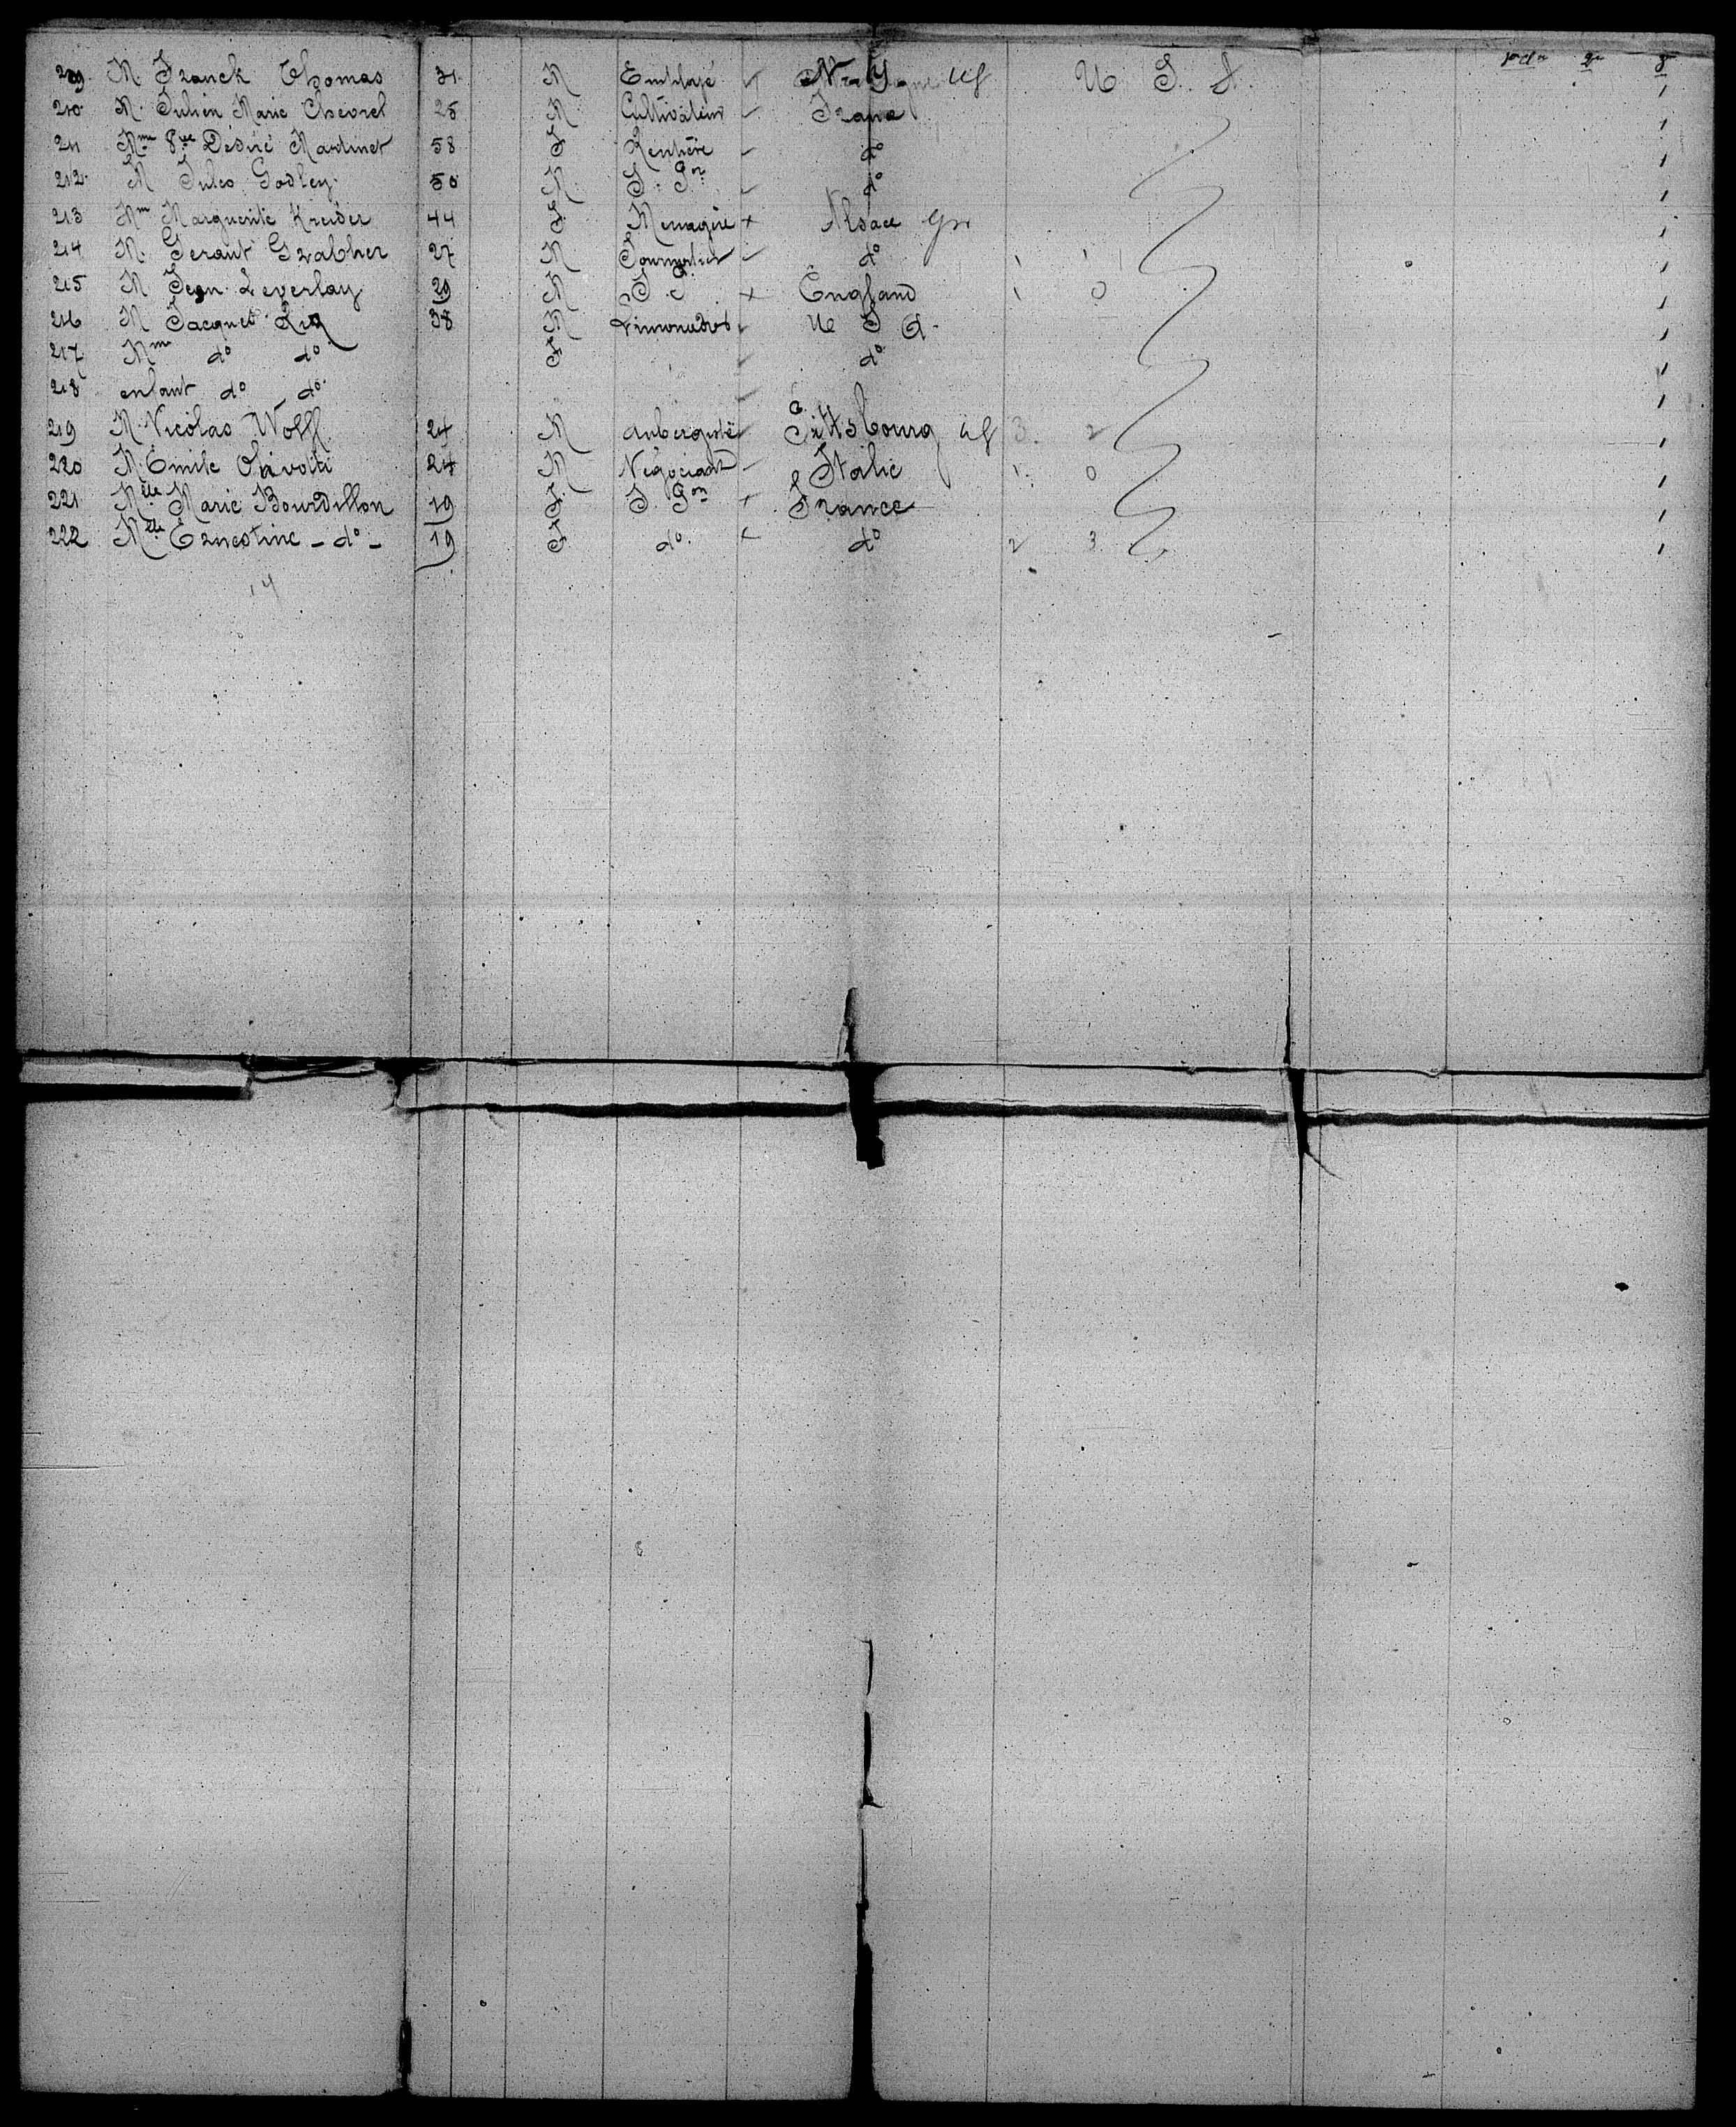 209. M. Franck Thomas 31. M Employé N. Y Us U. S. A.
210. M. Julien Marie Chevrel 25 M Cultivateur France 1
211 Mme Vve Désiré Martinet 58 F Rentière do 1
212. M Jules Godley. 50 M. S. Pon do 1
213 Mm Marguerite Kreider 44 F. Menagère x Alsace Gr 1
214 M. Gerant Grabher 27 M do 1 1 1
215 M Jean Leverlay 29 M x England 1 0 1
216 M Jacques 38 M U S A. 1
217 Mme do do. F do 1
218 enfant do do. 1
219 M. Nicolas Wolff. 24 M aubergiste Pittsbourg Us 3. 2 1
220 M. Emile 24 M Négociant Italie 1. 0 1
221 Mlle Marie Bourdillon 19 F. S. Pon x France 1
222 Mlle Ernestine - do - 19 F. do. x do 2 3. 1
14